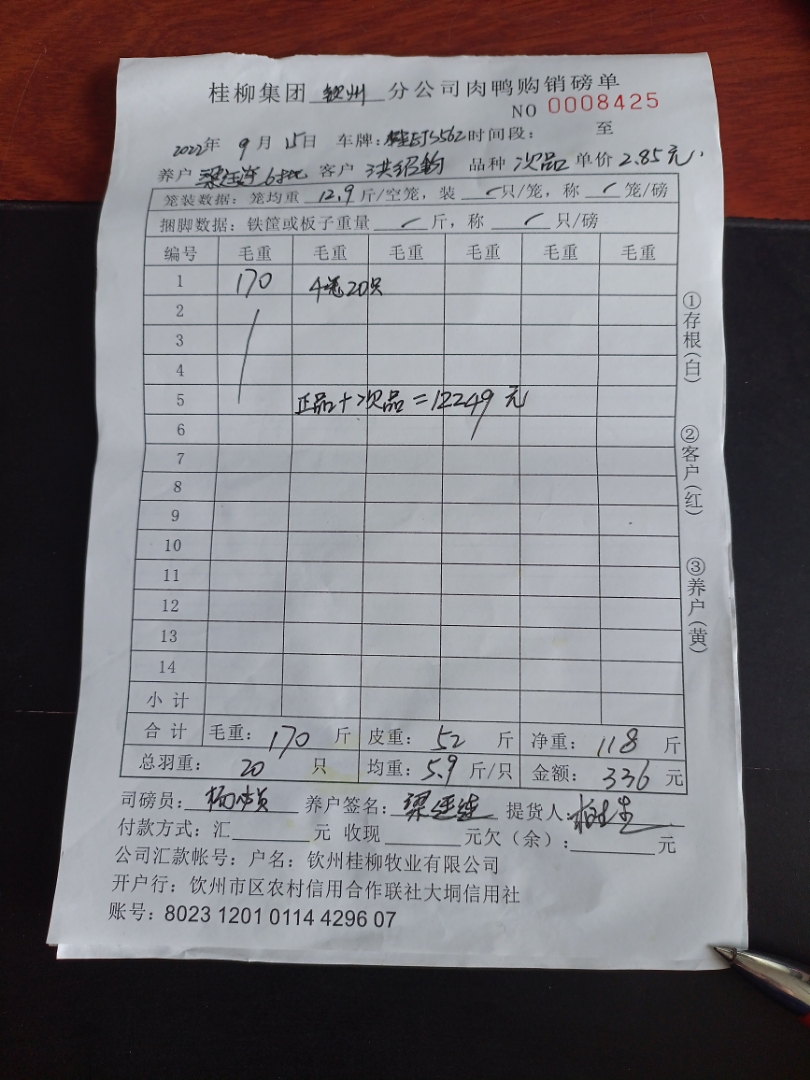 桂柳集团 钦州 分公司肉鸭购销磅单
NO 0008425
2022年 9月 15日 车牌: 时间段: 至
养户 客户 洪绍钧 品种 次品 单价 2.85元.
笼装数据: 笼均重 12.9 斤/空笼, 装 / 只/笼, 称 / 笼/磅
捆脚数据: 铁筐或板子重量 / 斤, 称 / 只/磅
编号 毛重 毛重 毛重 毛重 毛重 毛重
1 170 4笼20只
2
3
4
5 正品+次品=12249元
6
7
8
9
10
11
12
13
14
小计
合计 毛重: 170 斤 皮重: 52 斤 净重: 118 斤
总羽重: 20 只 均重: 5.9 斤/只 金额: 336 元
司磅员: 养户签名: 提货人:
付款方式: 汇 元 收现 元欠(余): 元
公司汇款帐号: 户名: 钦州桂柳牧业有限公司
开户行: 钦州市区农村信用合作联社大垌信用社
账号: 8023 1201 0114 4296 07
①存根(白)
②客户(红)
③养户(黄)